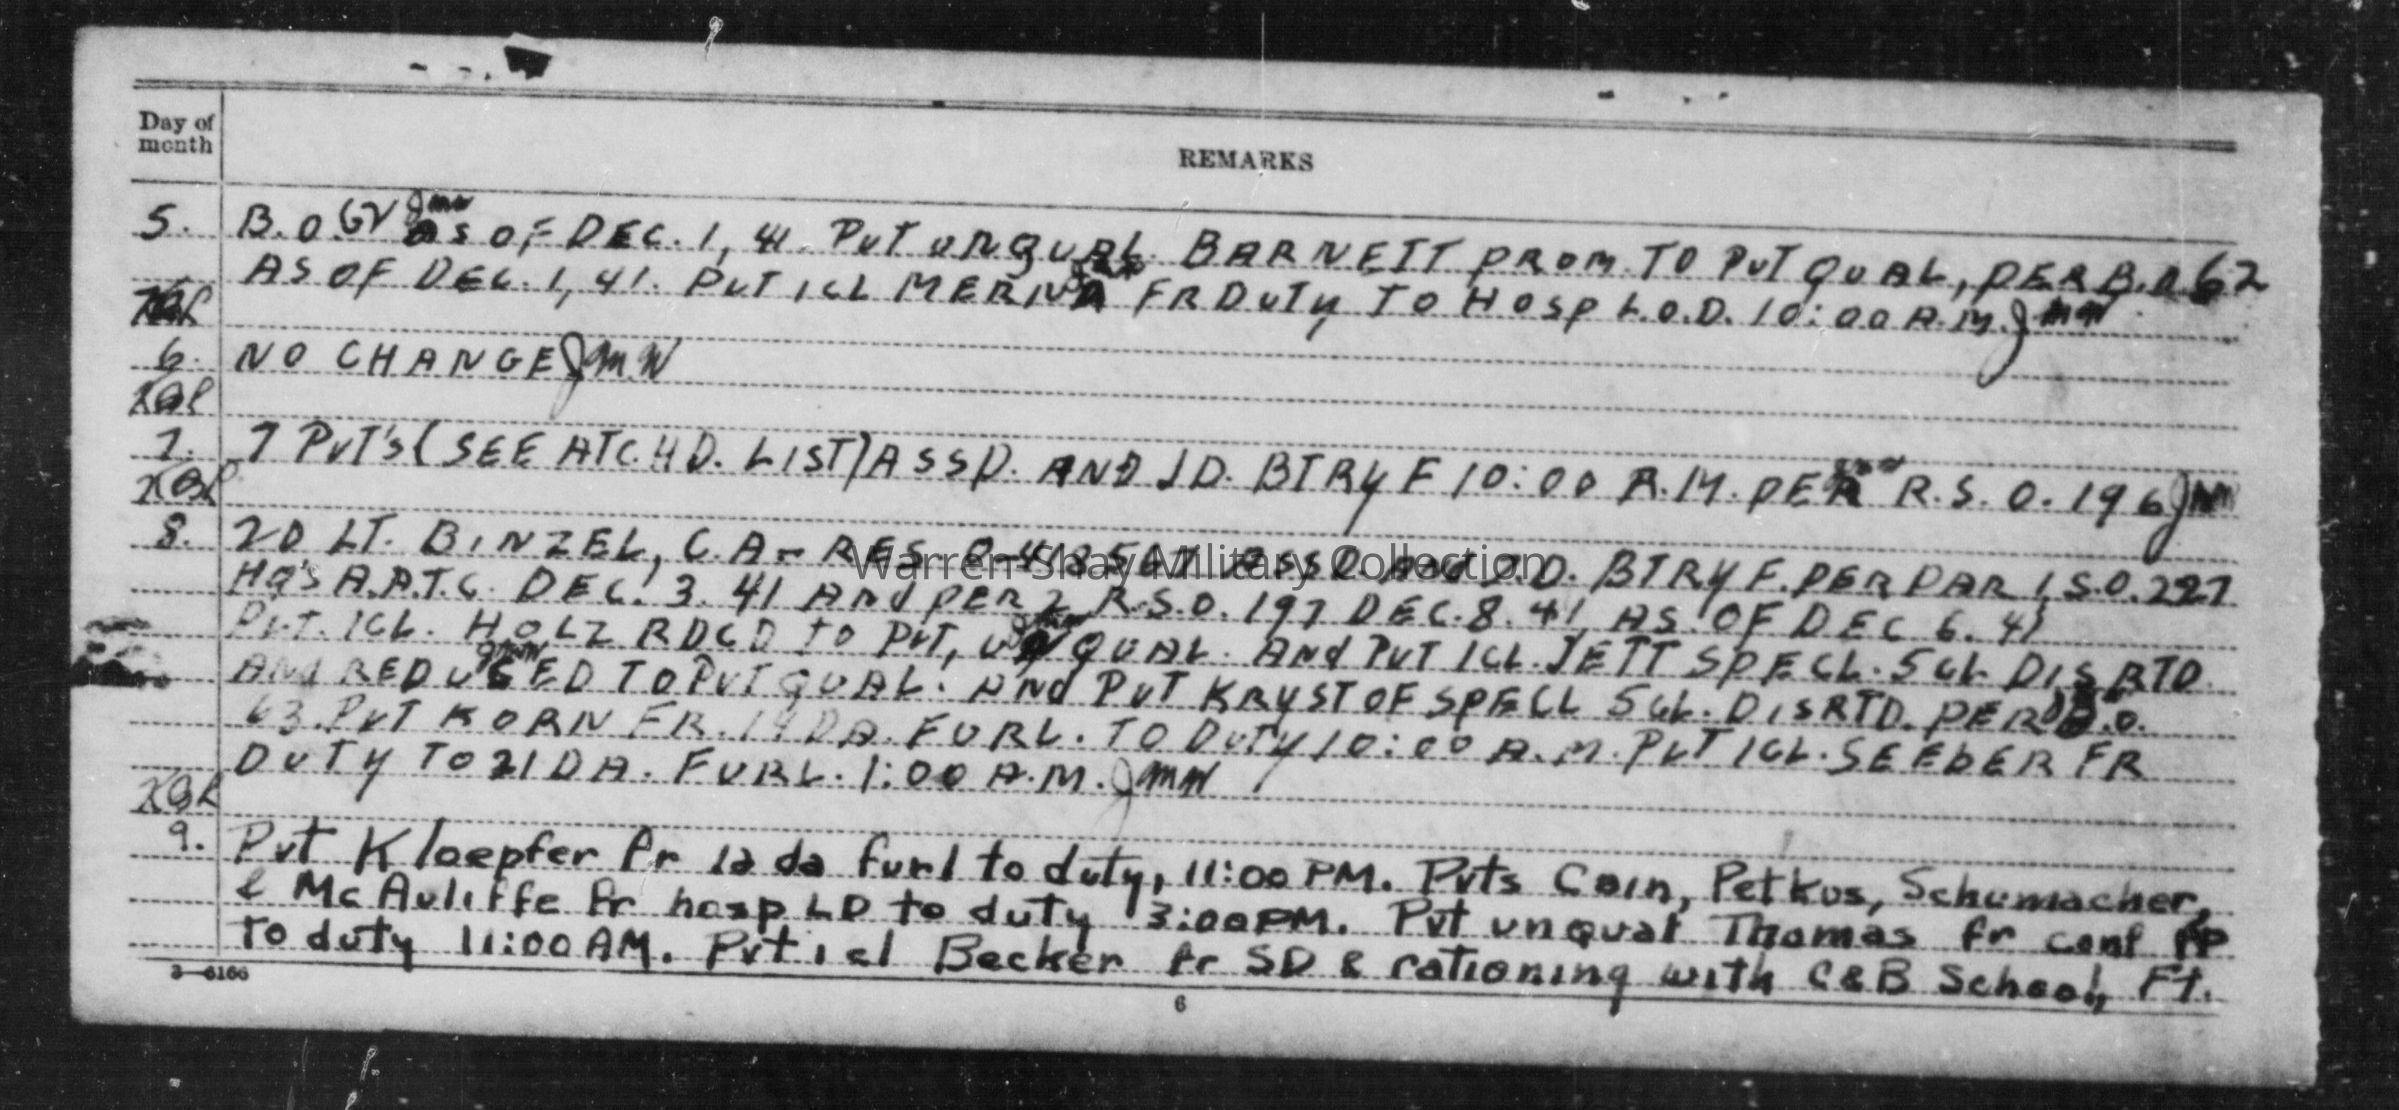 Day of
month
REMARKS
5. B.O. 62 JMW AS OF DEC. 1, 41. PVT UNQUAL. BARNETT PROM. TO PVT QUAL, PER B.O 62
AS OF DEC. 1, 41. PVT 1CL MERINA FR DUTY TO HOSP L.O.D. 10:00 A.M. JMW
6. NO CHANGE JM.W
7. 7 PVT'S (SEE ATCHD. LIST) ASSD. AND JD. BTRY F 10:00 A.M. PER R.S.O. 196 JMW
8. 2D LT. BINZEL, C.A-RES. ASSD AND J.D. BTRY F. PER PAR 1, S.O. 297
HQ'S A.A.T.C. DEC. 3. 41 AND PER 2 R.S.O. 197 DEC. 8. 41, AS OF DEC 6. 41
PVT. 1CL. HOLZ RDCD TO PVT, UNQUAL. AND PVT 1CL. JETT SPECL. 5CL DISRTD.
AND REDUSED TO PVT QUAL. AND PVT KRYSTOF SPECL 5CL. DISRTD. PER B.O.
63. PVT KORN FR. 14 DA. FURL. TO DUTY 10:00 A.M. PVT 1CL. SEEBER FR
DUTY TO 21 DA. FURL. 1:00 A.M. JMW
9. Pvt Kloepfer fr 12 da furl to duty, 11:00 PM. Pvts Coin, Petkus, Schumacher,
& McAuliffe fr hosp LD to duty 3:00PM. Pvt unqual Thomas fr conf PP
to duty 11:00 AM. Pvt 1cl Becker fr SD & rationing with C&B School, Ft.
3—6166
6
Warren-Shay Military Collection